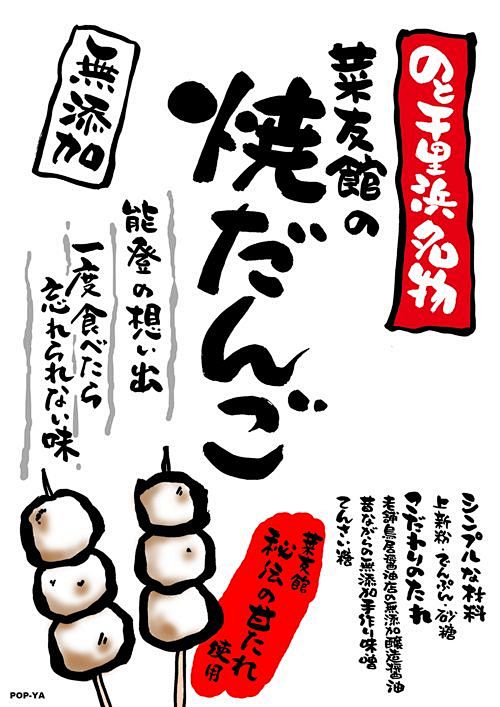 のと千里浜名物
菜友館の
焼だんご
無添加
能登の想い出
一度食べたら
忘れられない味
シンプルな材料
上新粉・でんぷん・砂糖
こだわりのたれ
老舗鳥居醤油店の無添加醸造醤油
昔ながらの無添加手作り味噌
てんさい糖
菜友館
秘伝の甘たれ
使用
POP-YA